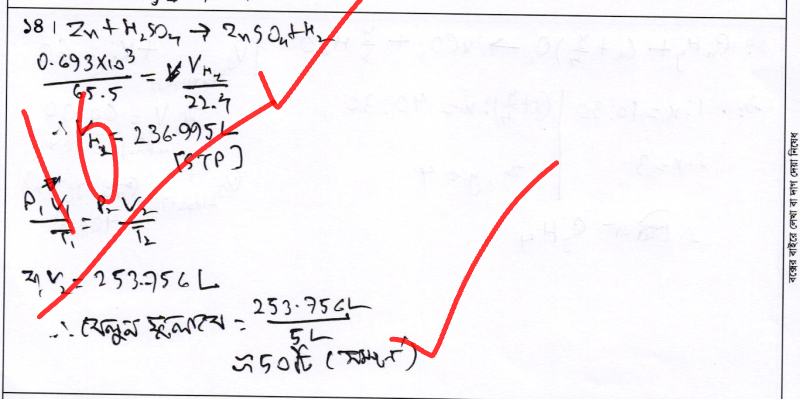 ১৪। Zn + H₂SO₄ → ZnSO₄ + H₂
0.693×10³/65.5 = V_H₂/22.4
∴ V_H₂ = 236.995L
[STP]
P₁V₁/T₁ = P₂V₂/T₂
বা, V₂ = 253.756 L
∴ বেলুন ফুলাবে = 253.756L/5L
≈ 50টি (সম্পূর্ণ)
বক্সের বাইরে লেখা বা দাগ দেয়া নিষেধ